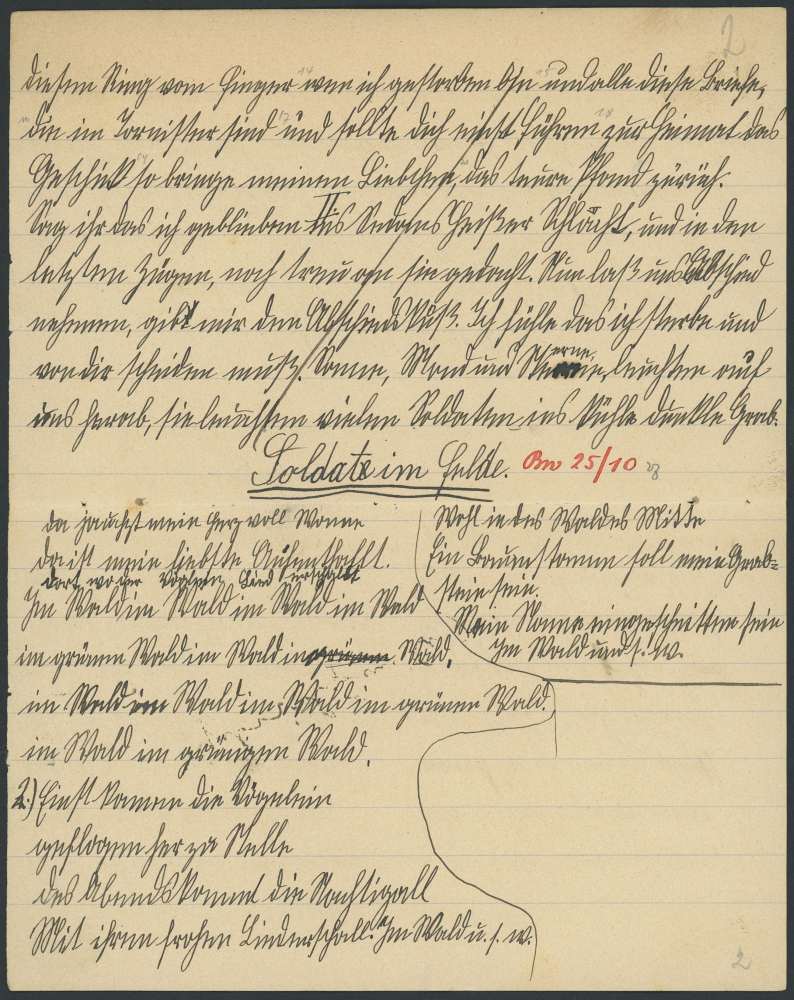 2
diesen Ring vom Finger wen ich gestorben bin und alle diese Briefe,
die im Tornister sind und sollte dich einst führen zur Heimat das
Geschick so bringe meinem Liebchen, das teure Pfand zurück.
Sag ihr das ich geblieben II is Sedans heißer Schlacht, und in den
letzten Zügen, noch treu an sie gedacht. Nun laß uns Abschied
nehmen, gibt mir den Abschiedskuß. Ich fühle das ich sterbe und
von dir scheiden muß. Sonne, Mond und Sterne, leuchten auf
uns herab, sie leuchten vielen Soldaten ins kühle dunkle Grab.
Soldat im Felde. Bw 25/10
da jauchzt mein Herz voll Wonne
da ist mein liebster Aufenthallt.
dort wo der Vöglein Lied erschallt
Im Wald im Wald im Wald im Wald
im grünen Wald im Wald im grünen Wald,
im Wald im Wald im Wald im grünen Wald.
im Wald im grünigen Wald.
2.) Einst kamen die Vögelein
geflogen her za Stelle
des Abends kommt die Nachtigall
Mit ihren frohen Liederschall. Im Wald u. s. w.
Wohl in des Waldes Mitte
Ein Baumstamm soll mein Grab=
stein sein.
Mein Name eingeschnitten sein
Im Wald und s. w.
2